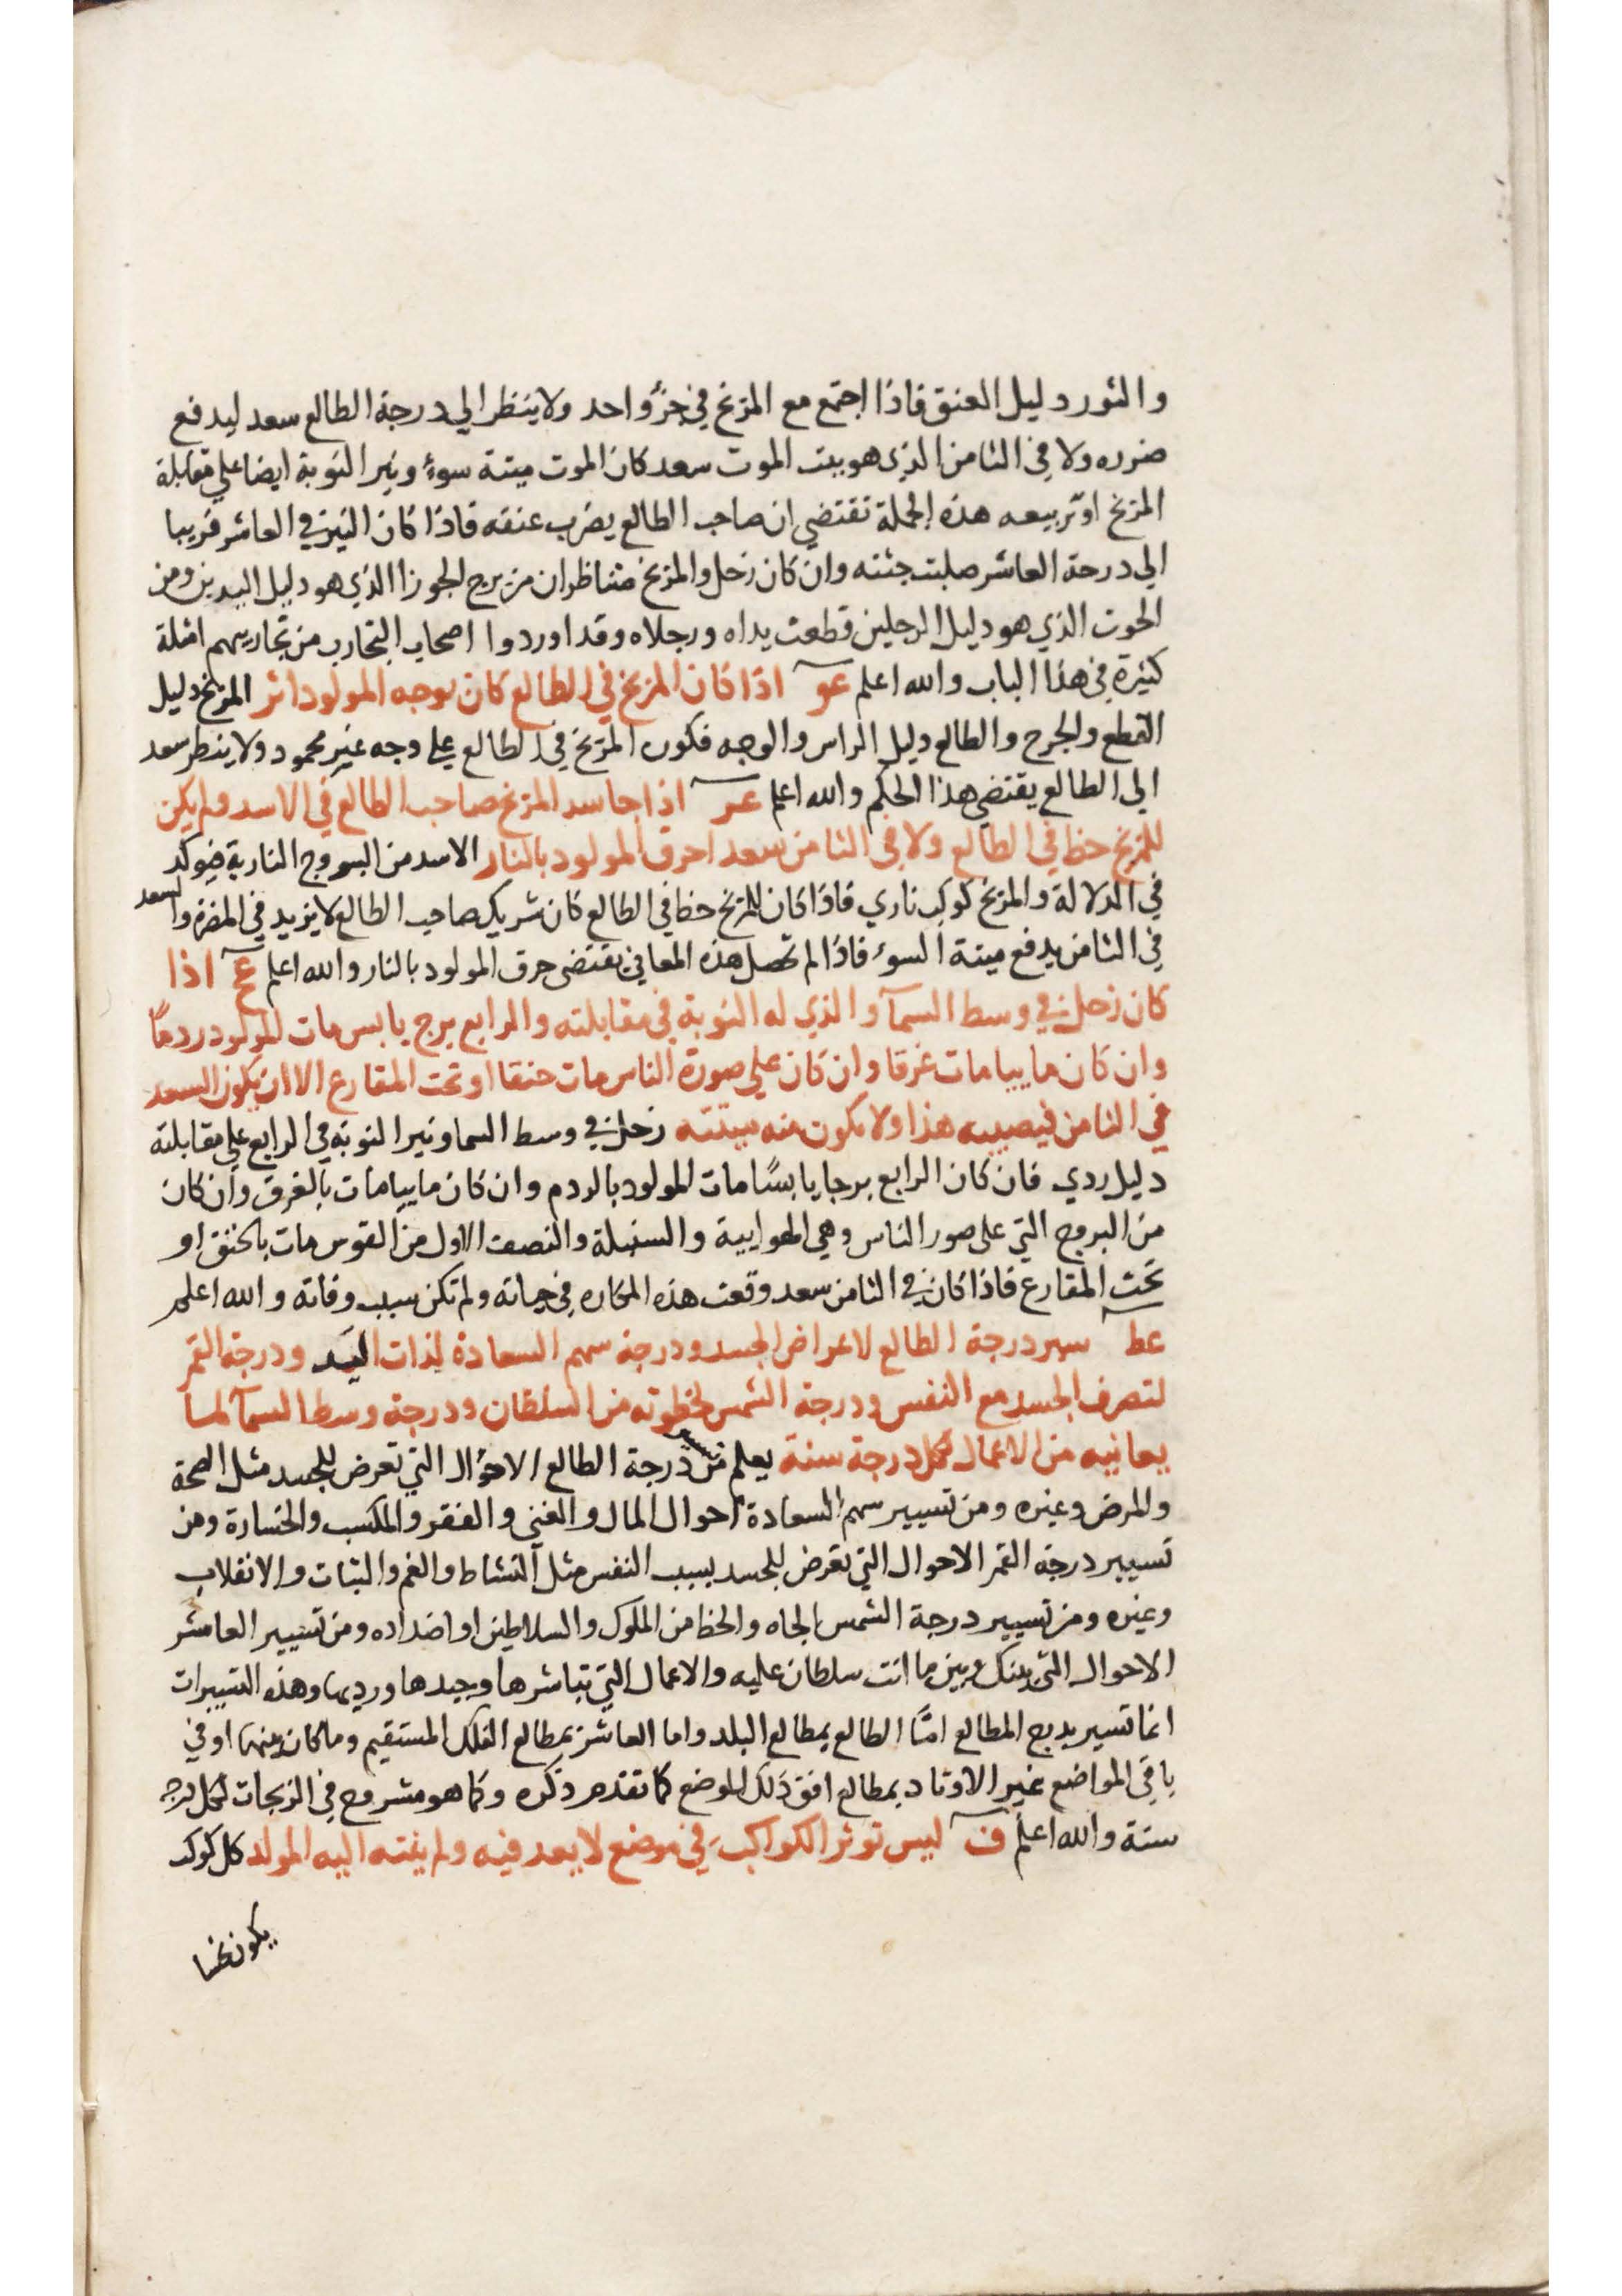 والثور دليل العنق فاذا اجتمع مع المريخ في جزؤ واحد ولا ينظر الي درجة الطالع سعد ليدفع
ضرره ولا في الثامن الذي هو بيت الموت سعد كان الموت ميتة سوء ونير النوبة ايضا علي مقابلة
المريخ او تربيعه هذه الجملة تقتضي ان صاحب الطالع يضرب عنقه فاذا كان النير في العاشر قريبا
الي درجة العاشر صلبت جثته وان كان زحل والمريخ متناظران من برج الجوزا الذي هو دليل اليدين ومن
الحوت الذي هو دليل الرجلين قطعت يداه ورجلاه وقد اوردوا اصحاب التجارب من تجاريبهم امثلة
كثيرة في هذا الباب والله اعلم عو اذا كان المريخ في الطالع كان بوجه المولود اثر المريخ دليل
القطع والجرح والطالع دليل الراس والوجه فكون المريخ في الطالع علي وجه غير محمود ولا ينظر سعد
الي الطالع يقتضي هذا الحكم والله اعلم عز اذا جاسد المريخ صاحب الطالع في الاسد ولم يكن
للمريخ حظ في الطالع ولا في الثامن سعد احرق المولود بالنار الاسد من البروج النارية فيوكد
في الدلالة والمريخ كوكب ناري فاذا كان للمريخ حظا في الطالع كان شريك صاحب الطالع لا يزيد في المضرة والسعد
في الثامن يدفع ميتة السوء فاذا لم تحصل هذه المعاني يقتضي حرق المولود بالنار والله اعلم عح اذا
كان زحل في وسط السمآ والذي له النوبة في مقابلته والرابع برج يابس مات المولود ردمًا
وان كان ماييا مات غرقا وان كان علي صورة الناس مات خنقا او تحت المقارع الا ان يكون السعد
في الثامن فيصيبه هذا ولا يكون منه ميتته زحل في وسط السما ونير النوبة في الرابع علي مقابلته
دليل ردي فان كان الرابع برجا يابسًا مات المولود بالردم وان كان ماييا مات بالغرق وان كان
من البروج التي على صور الناس وهي الهوايية والسنبلة والنصف الاول من القوس مات بالخنق او
تحت المقارع فاذا كان في الثامن سعد وقعت هذه المكاره في حياته ولم تكن سبب وفاته والله اعلم
عط سير درجة الطالع لاعراض الجسد ودرجة سهم السعادة لذات اليد ودرجة القمر
لتصرف الجسد مع النفس ودرجة الشمس لحظوته من السلطان ودرجة وسط السمآ لما
يعانيه من الاعمال لكل درجة سنة يعلم من درجة الطالع الاحوال التي تعرض للجسد مثل الصحة
والمرض وغيره ومن تسيير سهم السعادة احوال المال والغني والفقر والمكسب والخسارة ومن
تسيير درجة القمر الاحوال التي تعرض للجسد بسبب النفس مثل النشاط والغم والثبات والانقلاب
وغيره ومن تسيير درجة الشمس الجاه والحظ من الملوك والسلاطين او اضداده ومن تسيير العاشر
الاحوال التي بينك وبين ما انت سلطان عليه والاعمال التي تباشرها وجيدها ورديها وهذه التسييرات
انما تسير بدرج المطالع امّا الطالع بمطالع البلد واما العاشر بمطالع الفلك المستقيم وما كان بينهما او في
باقي المواضع غير الاوتاد بمطالع افق ذلك الموضع كما تقدم ذكره وكما هو مشروح في الزيجات لكل درجة
سنة والله اعلم ف ليس توثر الكواكب في موضع لا يعد فيه ولم يفته اليه المولد كل كوكب
يكون نحسا